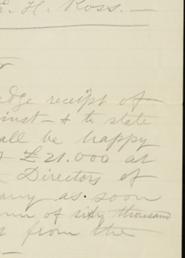 E. H. Ross.
edge receipt of
inst - & to state
all be happy
£21.000 at
Directors of
any as soon
of sixty thousand
from the